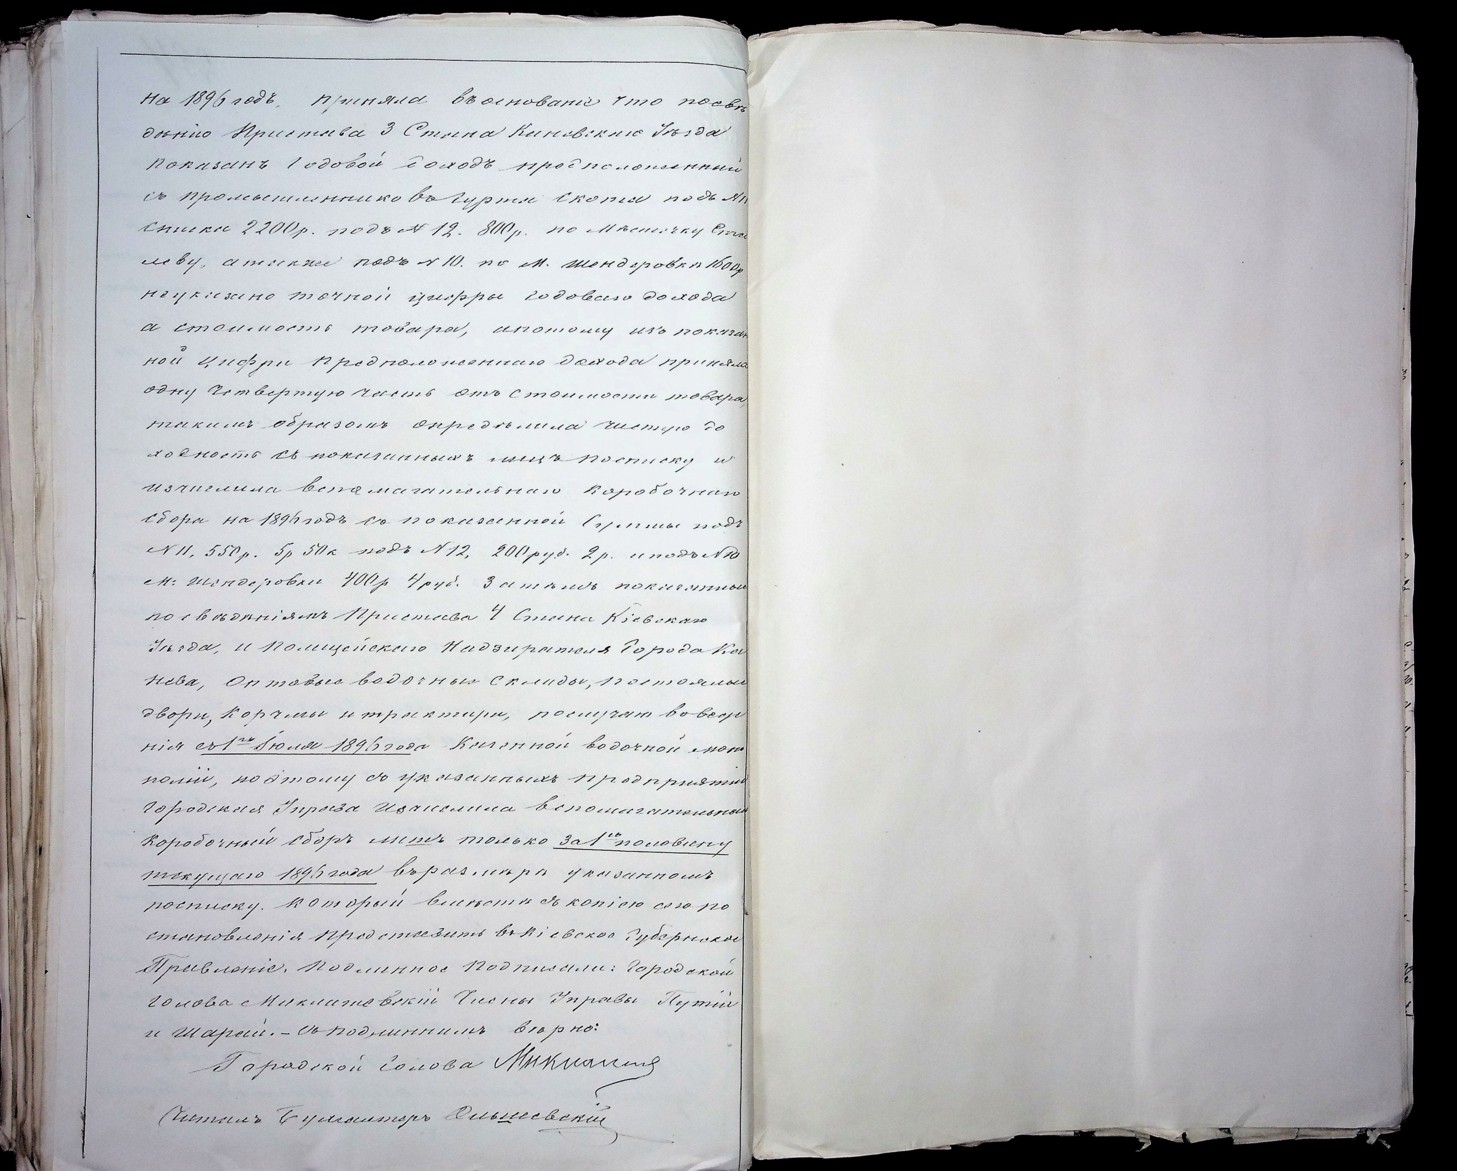 на 1896 годъ, приняла въ основаніе что по свѣ
дѣнію Пристава 3 Стана Каневскаго Уѣзда
показанъ годовой доходъ предположенный
съ промышленников гурты скота подъ №11
списка 2200р. подъ № 12. 800р. по Мѣстечку Сте
леву, а также подъ № 10. по М. Шендеровки 1600р
не указано точной цифры годоваго дохода
а стоимость товара, а потому изъ показан
ной цифры предположеннаго дохода приняла
одну четвертую часть отъ стоимости товара,
такимъ образомъ опредѣлила чистую до
ходность съ показанныхъ лицъ по списку и
изчислила вспомагательнаго коробочнаго
сбора на 1896 годъ съ показанной суммы подъ
№ 11, 550р. 5р 50к подъ № 12, 200 руб. 2р. и подъ № 10
М. Шендеровки 400р 4 руб. Затѣмъ показанные
по свѣдѣніямъ Пристава 4 Стана Кіевскаго
Уѣзда, и Полицейскаго Надзирателя Города Ка
нева, Оптовые водочные склады, постоялые
дворы, корчмы и трактиры, послучаю введе
нія съ 1го Іюля 1896 года Казенной водочной моно
поліи, поэтому съ указанныхъ предпріятій
Городская Управа изчислила вспомагательный
коробочный сборъ лишь только за 1ю половину
текущаго 1896 года въ размѣрѣ указанномъ
по списку. который вмѣстѣ съ копіею сего по
становленія представить въ Кіевское Губернское
Правленіе. Подлинное подписали: Городской
голова Миклашевскій Члены Управы Путій
и Шарай. – Съ подлиннымъ вѣрно:
Городской Голова
Читалъ Бухгалтеръ Ольшевскій